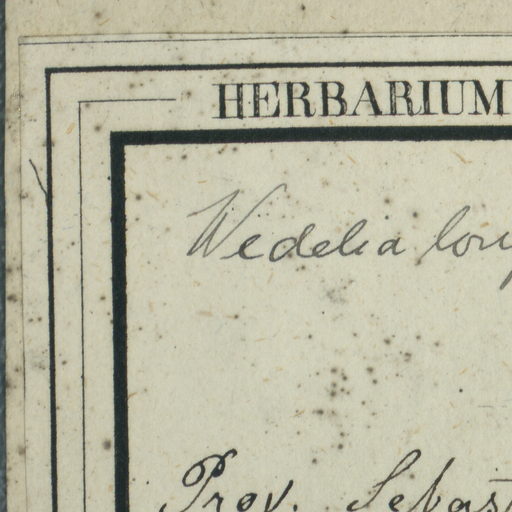 HERBARIUM
Wedelia long
Prov. Sebast